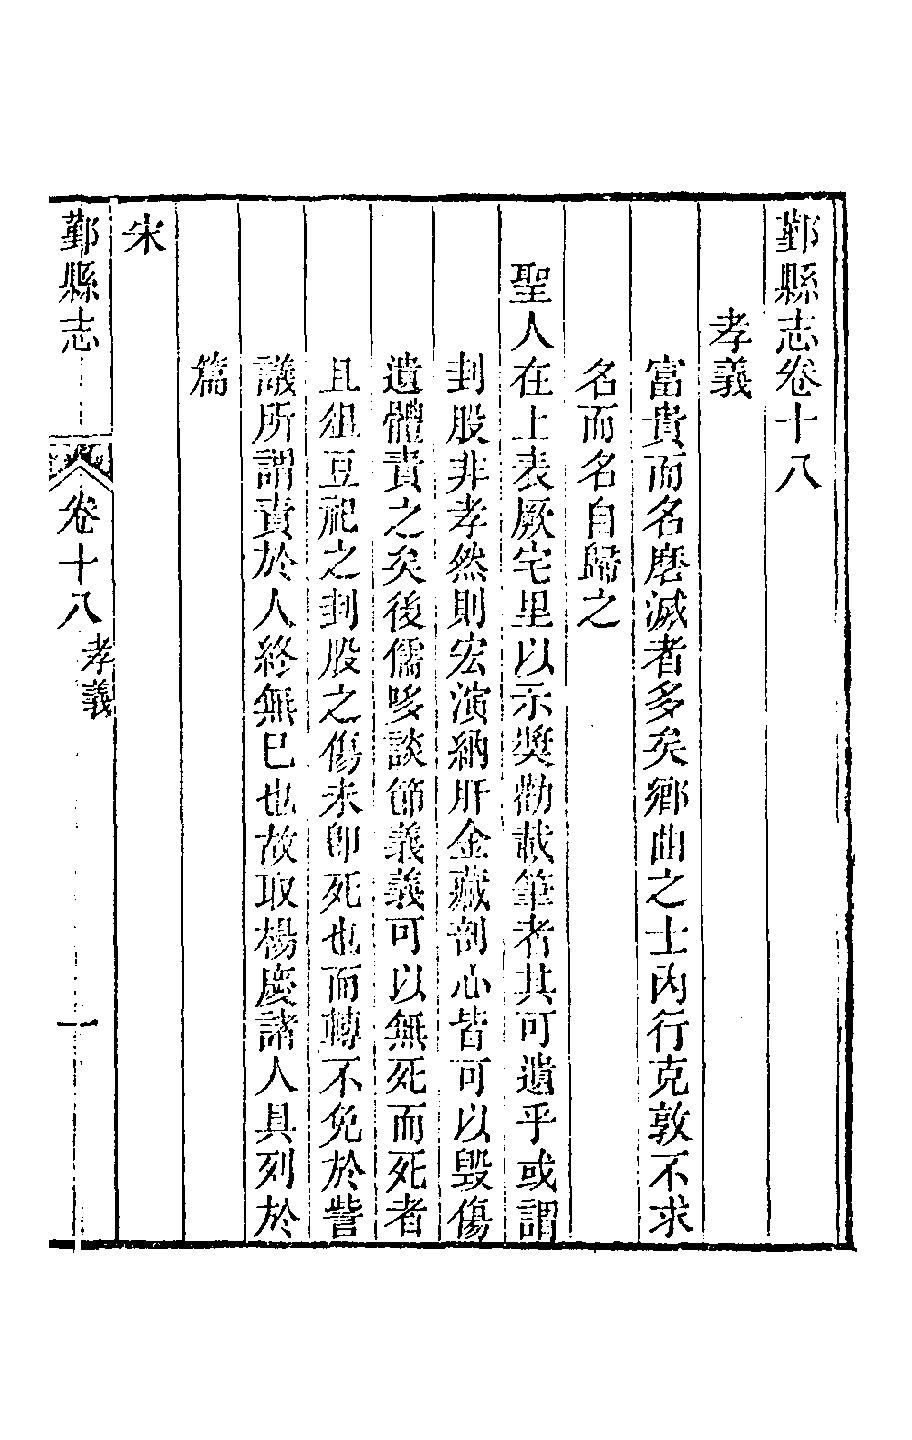 鄞縣志卷十八
孝義
富貴而名磨滅者多矣鄉曲之士內行克敦不求
名而名自歸之
聖人在上表厥宅里以示奬勸載筆者其可遺乎或謂
刲股非孝然則宏演納肝金藏剖心皆可以毀傷
遺體責之矣後儒喙談節義義可以無死而死者
且俎豆祀之刲股之傷未卽死也而轉不免於訾
議所謂責於人終無已也故取楊慶諸人具列於
篇
宋
鄞縣志
卷十八
孝義
一